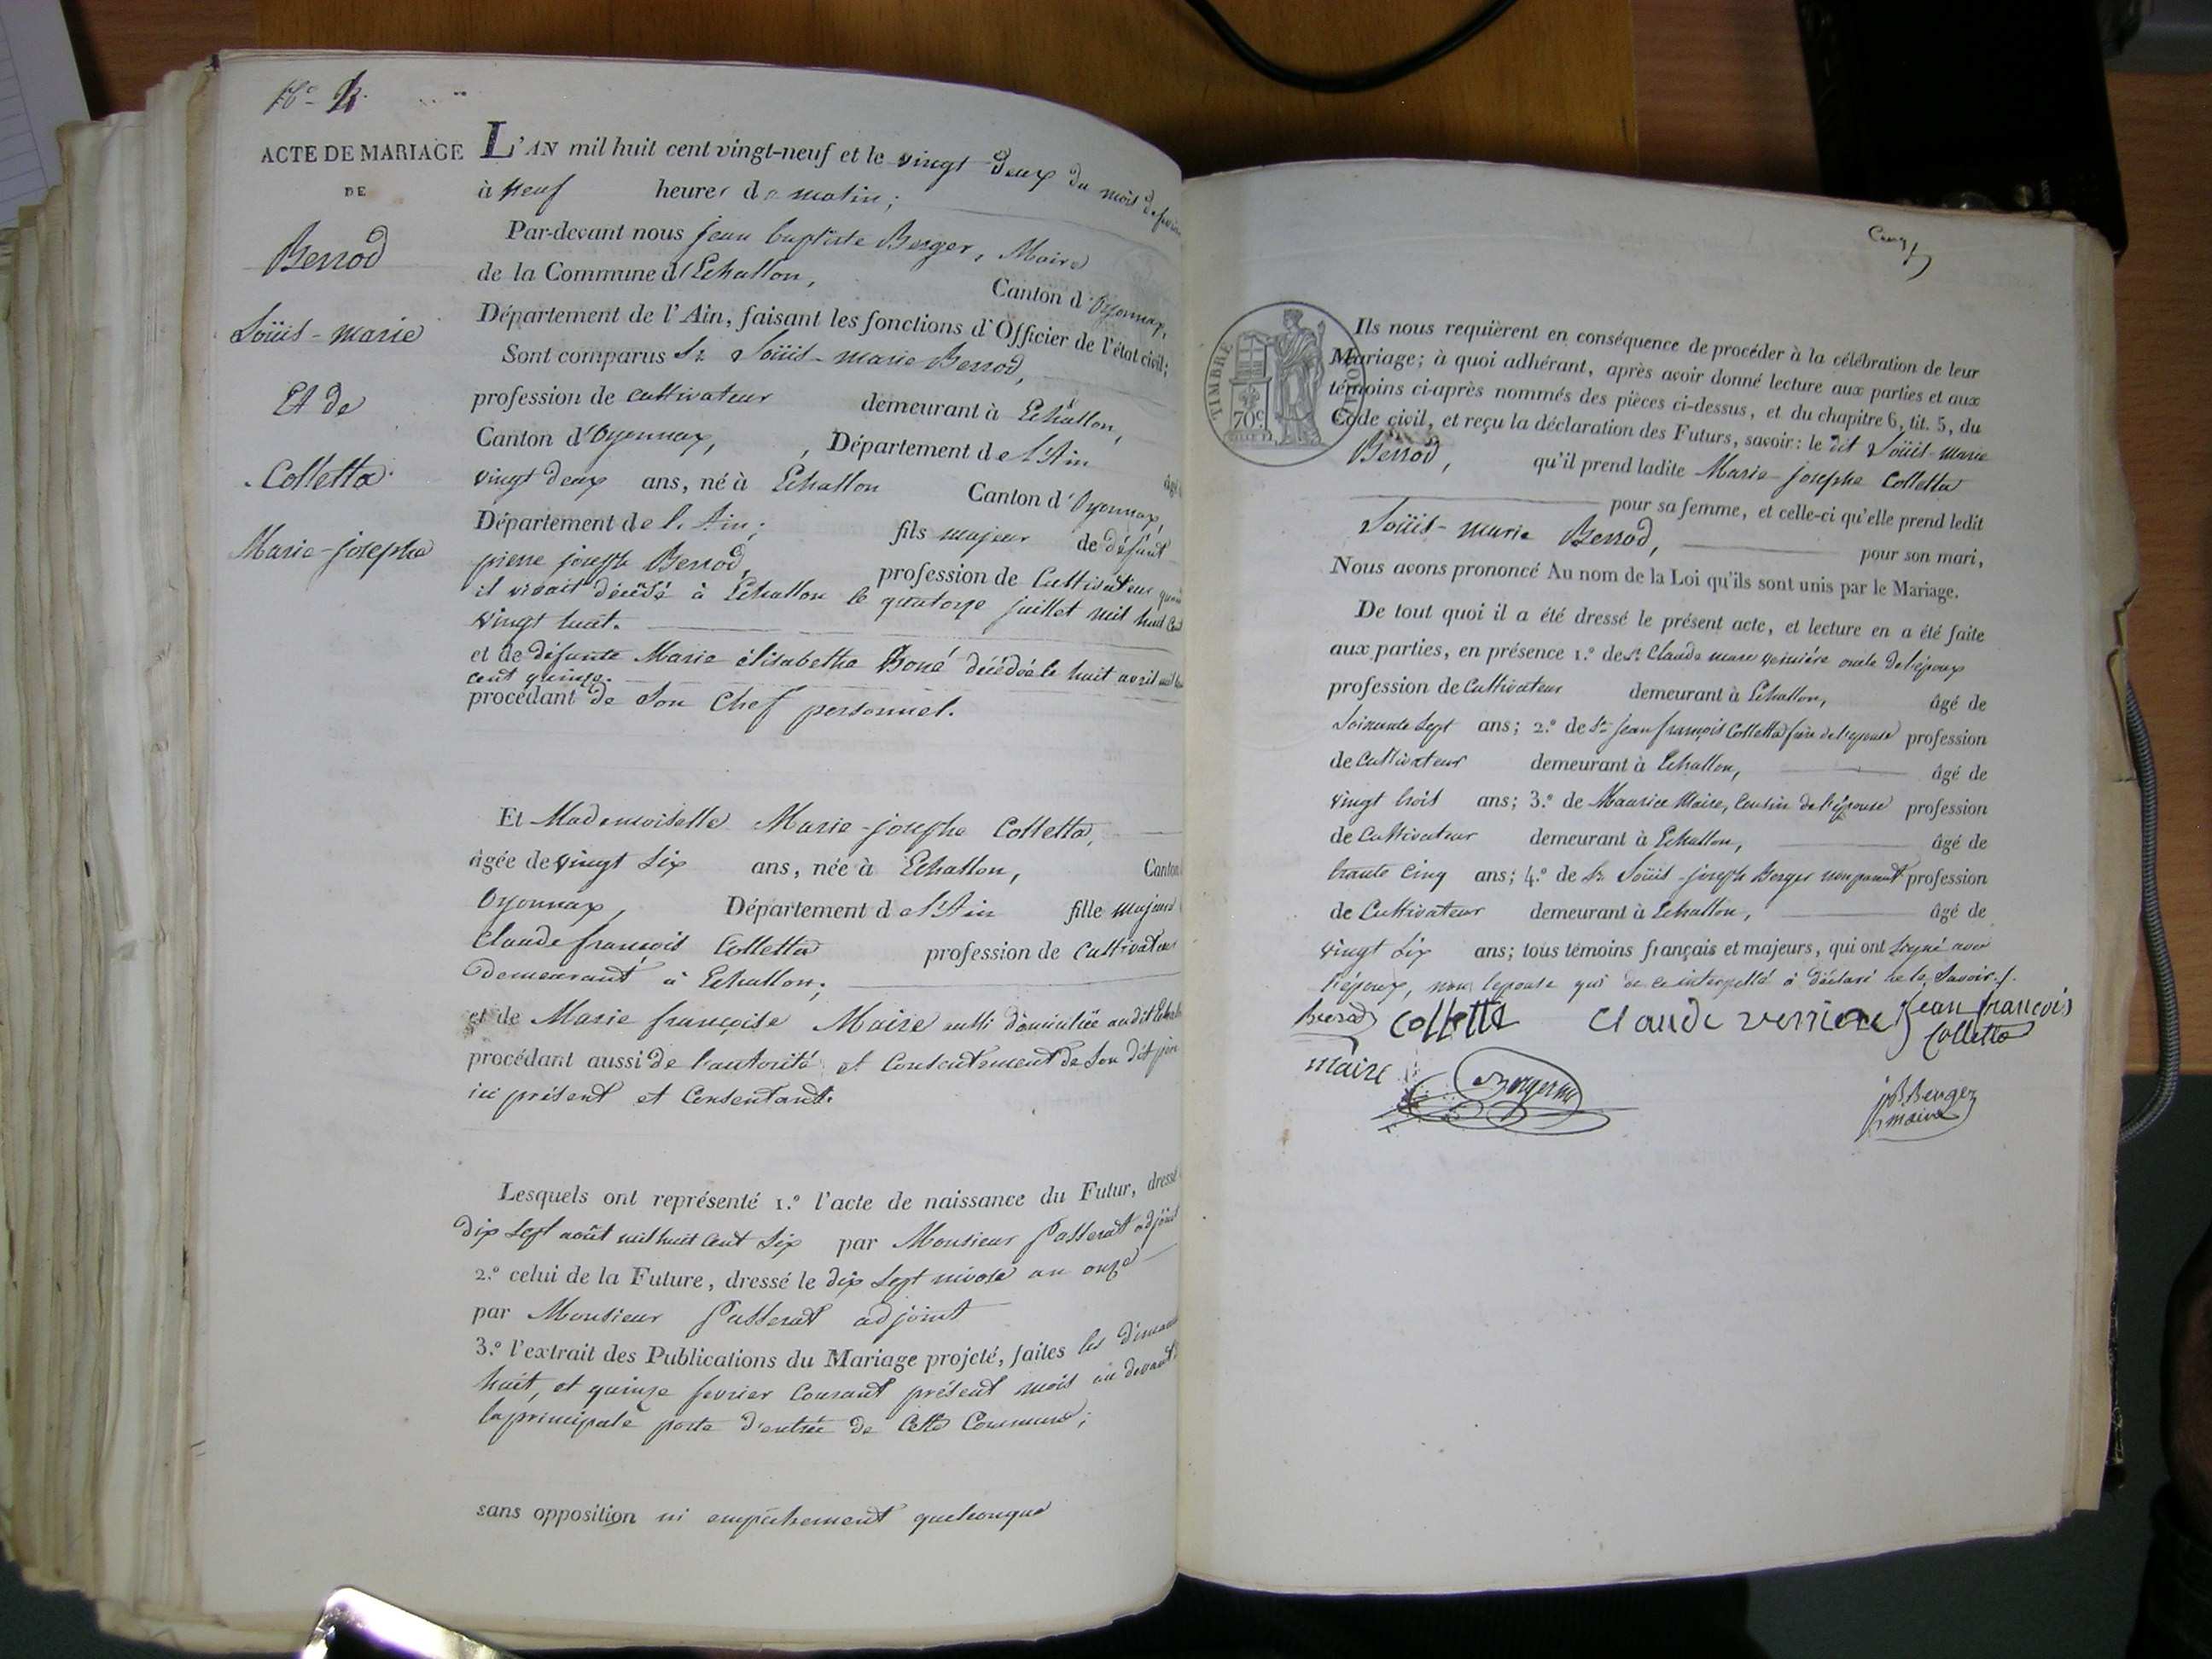 ACTE DE MARIAGE
DE
Berrod
Loüis-marie
Et de
Colletta
Marie-josephe
L'AN mil huit cent vingt-neuf et le vingt deux du mois de fevrier
à Neuf heures du matin;
Par-devant nous jean baptiste Berger, Maire
de la Commune d'Echallon, Canton d'Oyonnax,
Département de l'Ain, faisant les fonctions d'Officier de l'état civil;
Sont comparus Sr Loüis-marie Berrod,
profession de cultivateur demeurant à Echallon,
Canton d'Oyonnax, , Département de l'Ain âgé
vingt deux ans, né à Echallon Canton d'Oyonnax,
Département de l'Ain; fils majeur de défunt
pierre joseph Berrod, profession de Cultivateur quand
il vivait décédé à Echallon le quatorze juillet mil huit cent
vingt huit.
et de défunte Marie élisabethe décédée le huit avril mil huit
cent quinze.
procédant de Son Chef personnel.
Et Mademoiselle Marie-josephe Colletta,
âgée de vingt Six ans, née à Echallon, Canton
Oyonnax, Département de l'Ain fille majeure
Claude françois Colletta profession de Cultivateur
demeurant à Echallon;
et de Marie françoise Maire aussi domiciliée audit Echallon
procédant aussi de l'autorité et Consentement de Son dit père
ici présent et Consentant.
Lesquels ont représenté 1.º l'acte de naissance du Futur, dressé
dix Sept août mil huit Cent Six par Monsieur Passerat adjoint
2.º celui de la Future, dressé le dix Sept nivose an onze
par Monsieur Passerat adjoint
3.º l'extrait des Publications du Mariage projeté, faites les dimanches
huit, et quinze fevrier Courant présent mois au devant
la principale porte d'entrée de Cette Commune;
sans opposition ni empêchement quelconque
Cinq
TIMBRE ROYAL
70c
Ils nous requièrent en conséquence de procéder à la célébration de leur
Mariage; à quoi adhérant, après avoir donné lecture aux parties et aux
témoins ci-après nommés des pièces ci-dessus, et du chapitre 6, tit. 5, du
Code civil, et reçu la déclaration des Futurs, savoir: le dit Loüis-marie
Berrod, qu'il prend ladite Marie-josephe Colletta
pour sa femme, et celle-ci qu'elle prend ledit
Loüis-marie Berrod, pour son mari,
Nous avons prononcé Au nom de la Loi qu'ils sont unis par le Mariage.
De tout quoi il a été dressé le présent acte, et lecture en a été faite
aux parties, en présence 1.º de Sr Claude marie verniére oncle de l'époux
profession de Cultivateur demeurant à Echallon, âgé de
Soixante Sept ans; 2.º de Sr jean françois Colletta frère de l'epouse profession
de Cultivateur demeurant à Echallon, âgé de
vingt trois ans; 3.º de Maurice Maire, Cousin de l'épouse profession
de Cultivateur demeurant à Echallon, âgé de
trante Cinq ans; 4.º de Sr Loüis-joseph Berger non parent profession
de Cultivateur demeurant à Echallon, âgé de
vingt Six ans; tous témoins français et majeurs, qui ont Signé avec
l'époux, non l'epouse qui de ce interpellé à déclaré ne le Savoir.
Berrod Collette Claude verniere jean francois
Colletta
maire
j B. Berger
maire